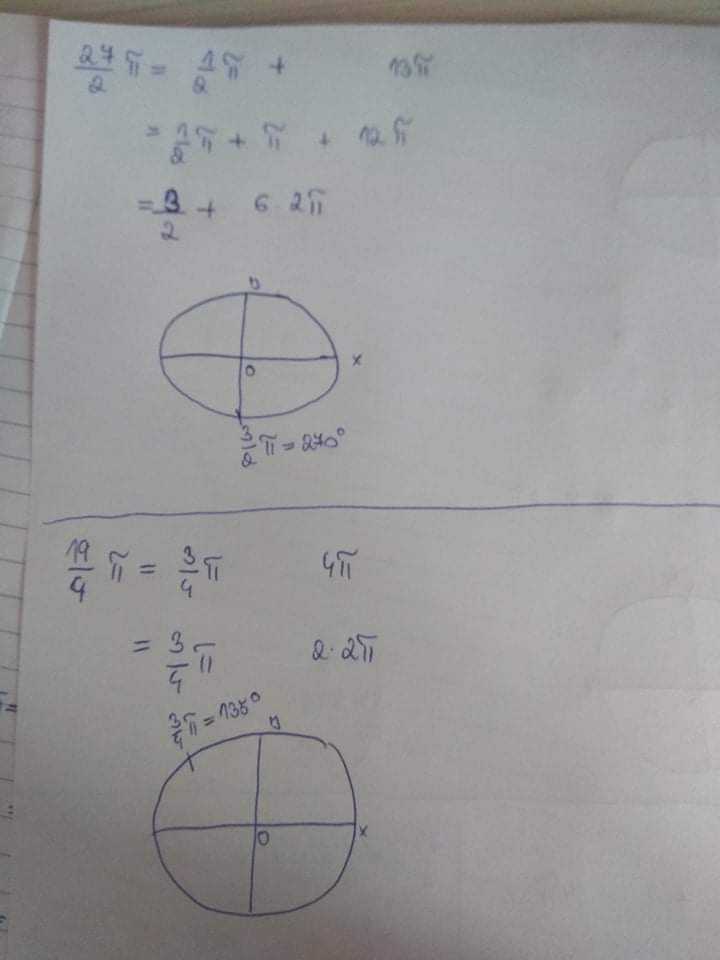 27/2 π = 1/2 π + 13π
= 1/2 π + π + 12π
= 3/2 + 6 · 2π
x
0
3/2 π = 270°
19/4 π = 3/4 π 4π
= 3/4 π 2 · 2π
3/4 π = 135°
0
x